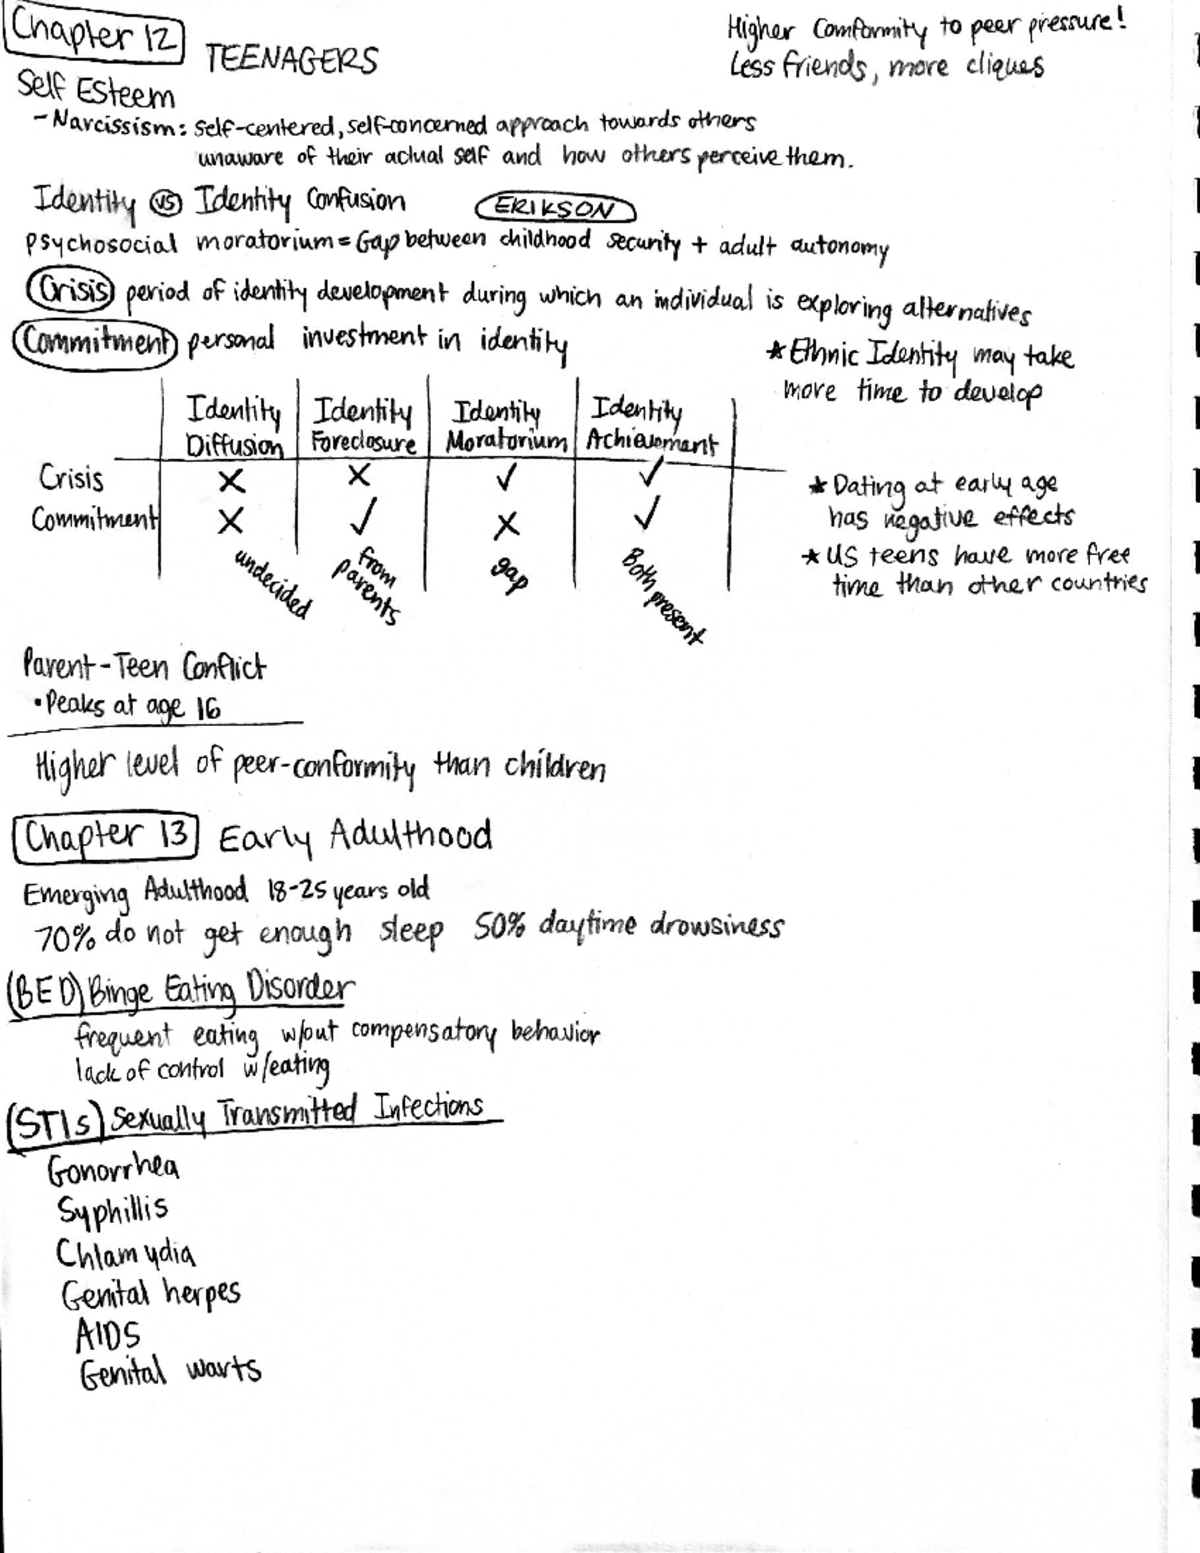 Chapter 12 TEENAGERS
Higher Comformity to peer pressure!
Less friends, more cliques
Self Esteem
- Narcissism: self-centered, self-concerned approach towards others
unaware of their actual self and how others perceive them.
Identity vs Identity Confusion ERIKSON
psychosocial moratorium = Gap between childhood security + adult autonomy
Crisis period of identity development during which an individual is exploring alternatives
Commitment personal investment in identity
★ Ethnic Identity may take
more time to develop
Identity Diffusion | Identity Foreclosure | Identity Moratorium | Identity Achievement
Crisis X X ✓ ✓
Commitment X ✓ X ✓
undecided from parents gap Both present
★ Dating at early age
has negative effects
★ US teens have more free
time than other countries
Parent-Teen Conflict
• Peaks at age 16
Higher level of peer-conformity than children
Chapter 13 Early Adulthood
Emerging Adulthood 18-25 years old
70% do not get enough sleep 50% daytime drowsiness
(BED) Binge Eating Disorder
frequent eating w/out compensatory behavior
lack of control w/eating
(STIs) Sexually Transmitted Infections
Gonorrhea
Syphillis
Chlamydia
Genital herpes
AIDS
Genital warts